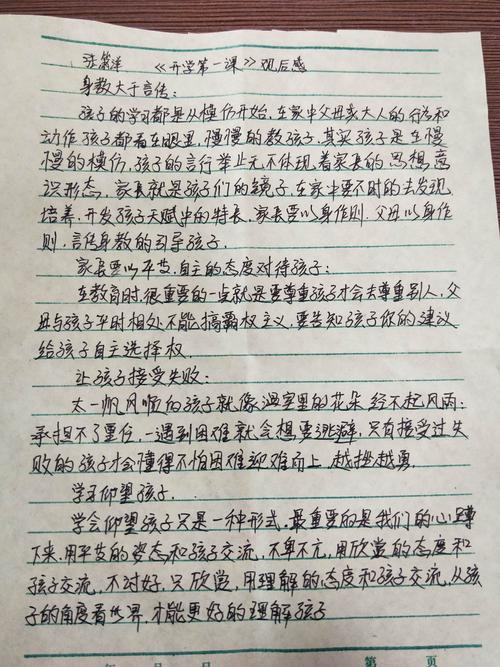 张箫洋 《开学第一课》观后感
身教大于言传:
孩子的学习都是从模仿开始,在家中父母亲大人的行为和
动作孩子都看在眼里,慢慢的教孩子,其实孩子是在慢
慢的模仿,孩子的言行举止无不体现着家长的思想,意
识形态,家长就是孩子们的镜子,在家中要不时的去发现
培养,开发孩子天赋中的特长,家长要以身作则.父母以身作
则,言传身教的引导孩子.
家长要以平等.自主的态度对待孩子:
在教育时,很重要的一点就是要尊重孩子才会去尊重别人,父
母与孩子平时相处不能搞霸权主义,要告知孩子你的建议
给孩子自主选择权.
让孩子接受失败:
太一帆风顺的孩子就像温室里的花朵经不起风雨;
承担不了重任,一遇到困难就会想要逃避,只有接受过失
败的孩子才会懂得不怕困难迎难而上,越挫越勇.
学习仰望孩子.
学会仰望孩子只是一种形式,最重要的是我们的心蹲
下来,用平等的姿态和孩子交流,不卑不亢,用欣赏的态度和
孩子交流,不讨好,只欣赏,用理解的态度和孩子交流,从孩
子的角度看世界,才能更好的理解孩子
年 月 日 第 页